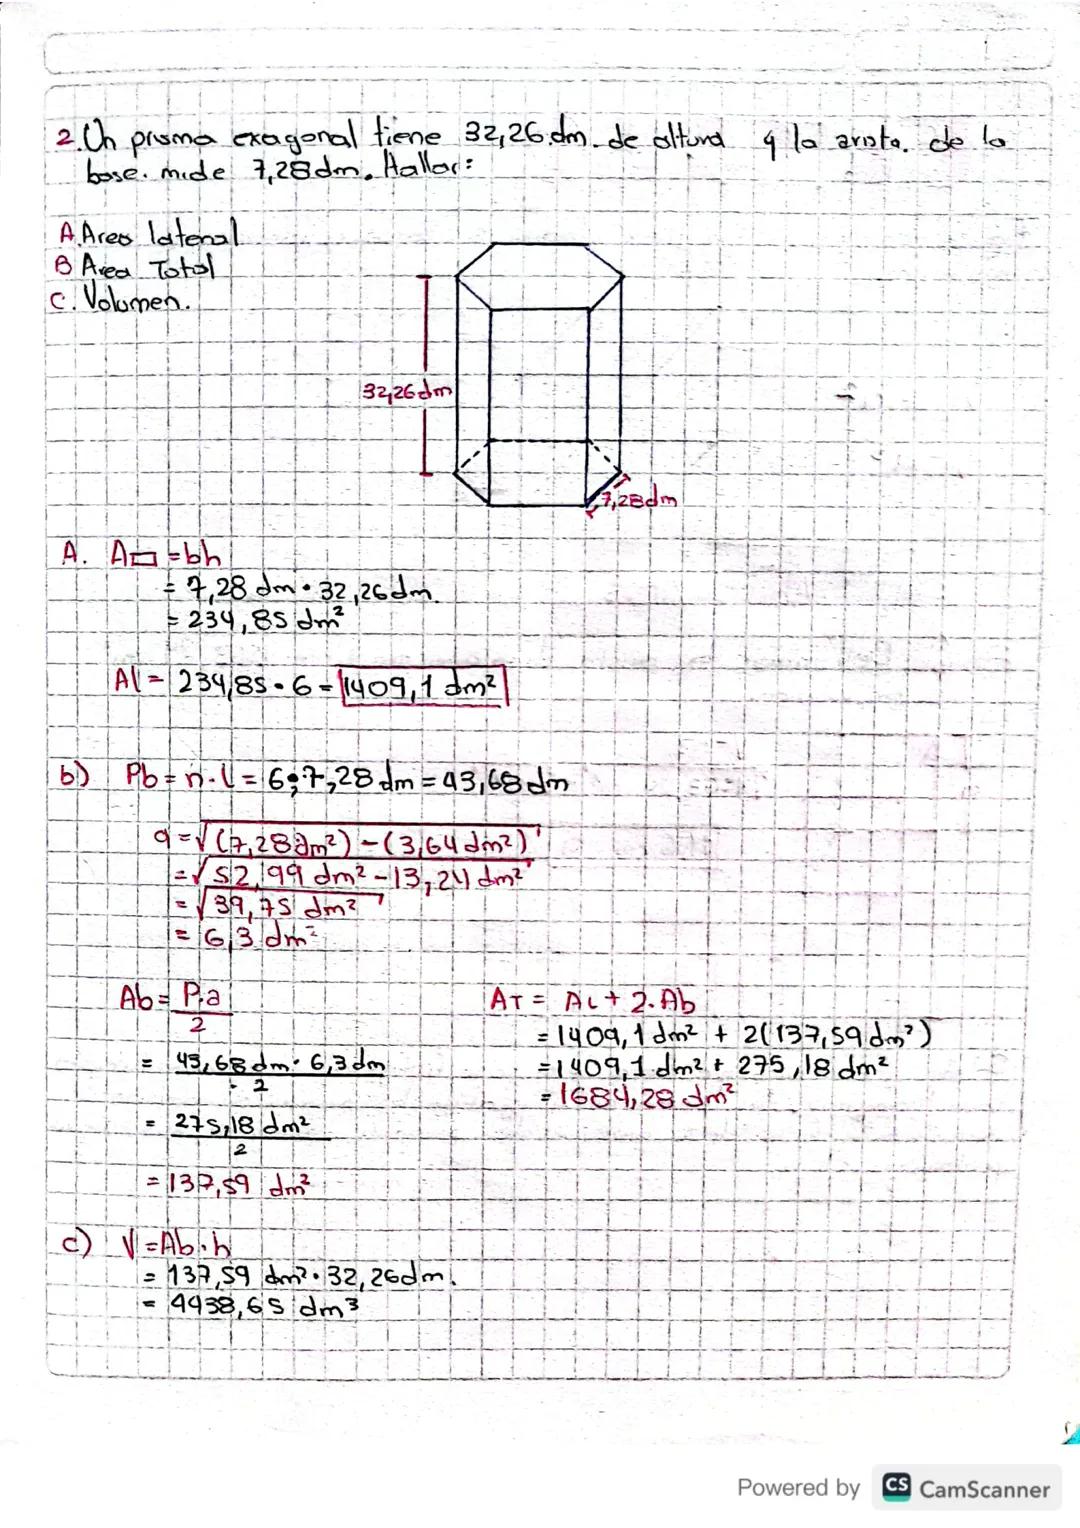 2. Un prisma exagonal tiene 32,26 dm de altura y la arista de la
base mide 7,28 dm. Hallar:
A. Area lateral
B Area Total
C. Volumen.
32,26 dm
7,28 dm
A. A▭ = bh
= 7,28 dm · 32,26 dm
= 234,85 dm²
Al = 234,85 · 6 = 1409,1 dm²
b) Pb = n · l = 6 · 7,28 dm = 43,68 dm
a = √(7,28 dm²) - (3,64 dm²)
= √52,99 dm² - 13,24 dm²
= √39,75 dm²
= 6,3 dm²
Ab = P.a
2
= 43,68 dm · 6,3 dm
2
= 275,18 dm²
2
= 137,59 dm²
AT = AL + 2.Ab
= 1409,1 dm² + 2(137,59 dm²)
= 1409,1 dm² + 275,18 dm²
= 1684,28 dm²
c) V = Ab . h
= 137,59 dm² · 32,26 dm.
= 4438,65 dm³
Powered by CS CamScanner